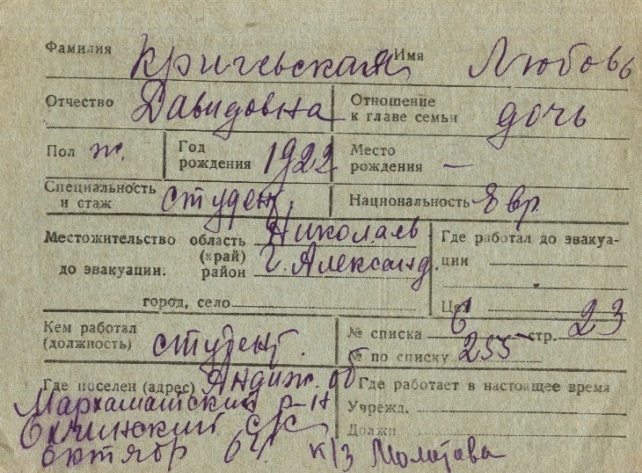 Фамилия Кричевская Имя Любовь
Отчество Давидовна Отношение к главе семьи дочь
Пол ж. Год рождения 1922 Место рождения —
Специальность и стаж студент Национальность Евр.
Местожительство до эвакуации. область (край) Николаев
район г. Александ.
город, село
Где работал до эвакуации
Цех
Кем работал (должность) студент.
№ списка 6 стр. 23
№ по списку 255
Где поселен (адрес) Андиж. об
Мархаматский р-н
с/с
октябр к/з Молотова
Где работает в настоящее время
Учрежд.
Должн